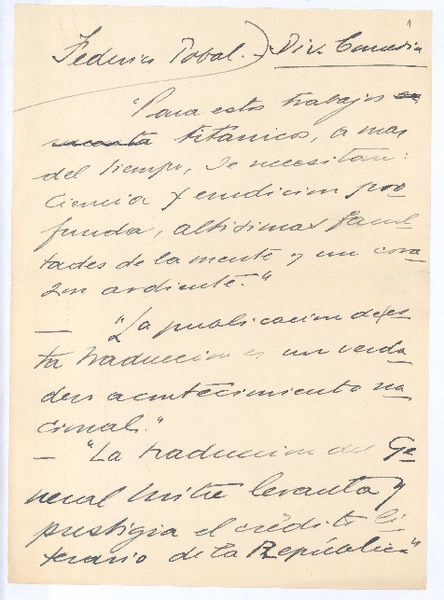 Federico Tobal. - Div. Comedia
"Para estos trabajos
titanicos, a mas
del tiempo, se necesitan:
Ciencia y erudicion pro-
funda, altisimas facul-
tades de la mente y un cora-
zon ardiente."
— "La publicacion de es-
ta traduccion es un verda-
dero acontecimiento na-
cional."
— "La traduccion del Ge-
neral Mitre levanta y
prestigia el crédito li-
terario de la República"